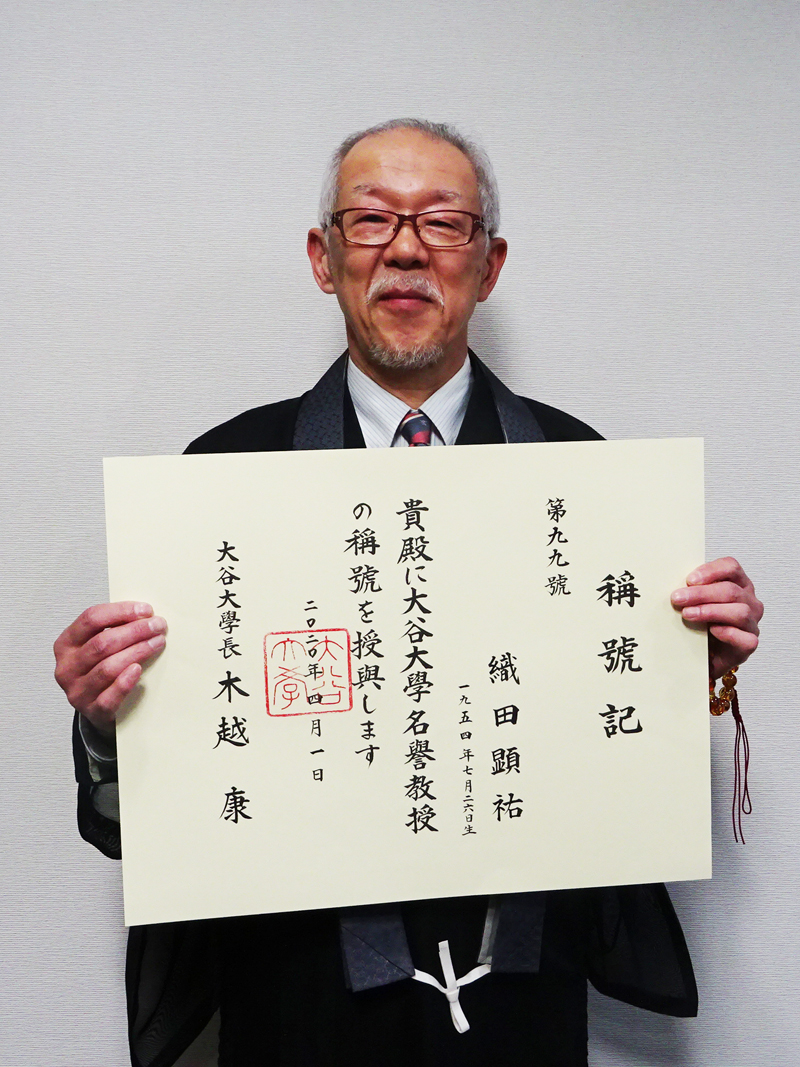 稱號記
第九九號
織田顕祐
一九五四年七月二六日生
貴殿に大谷大學名譽教授
の稱號を授與します
二〇二〇年四月一日
大谷大學長 木越 康
大谷
大學